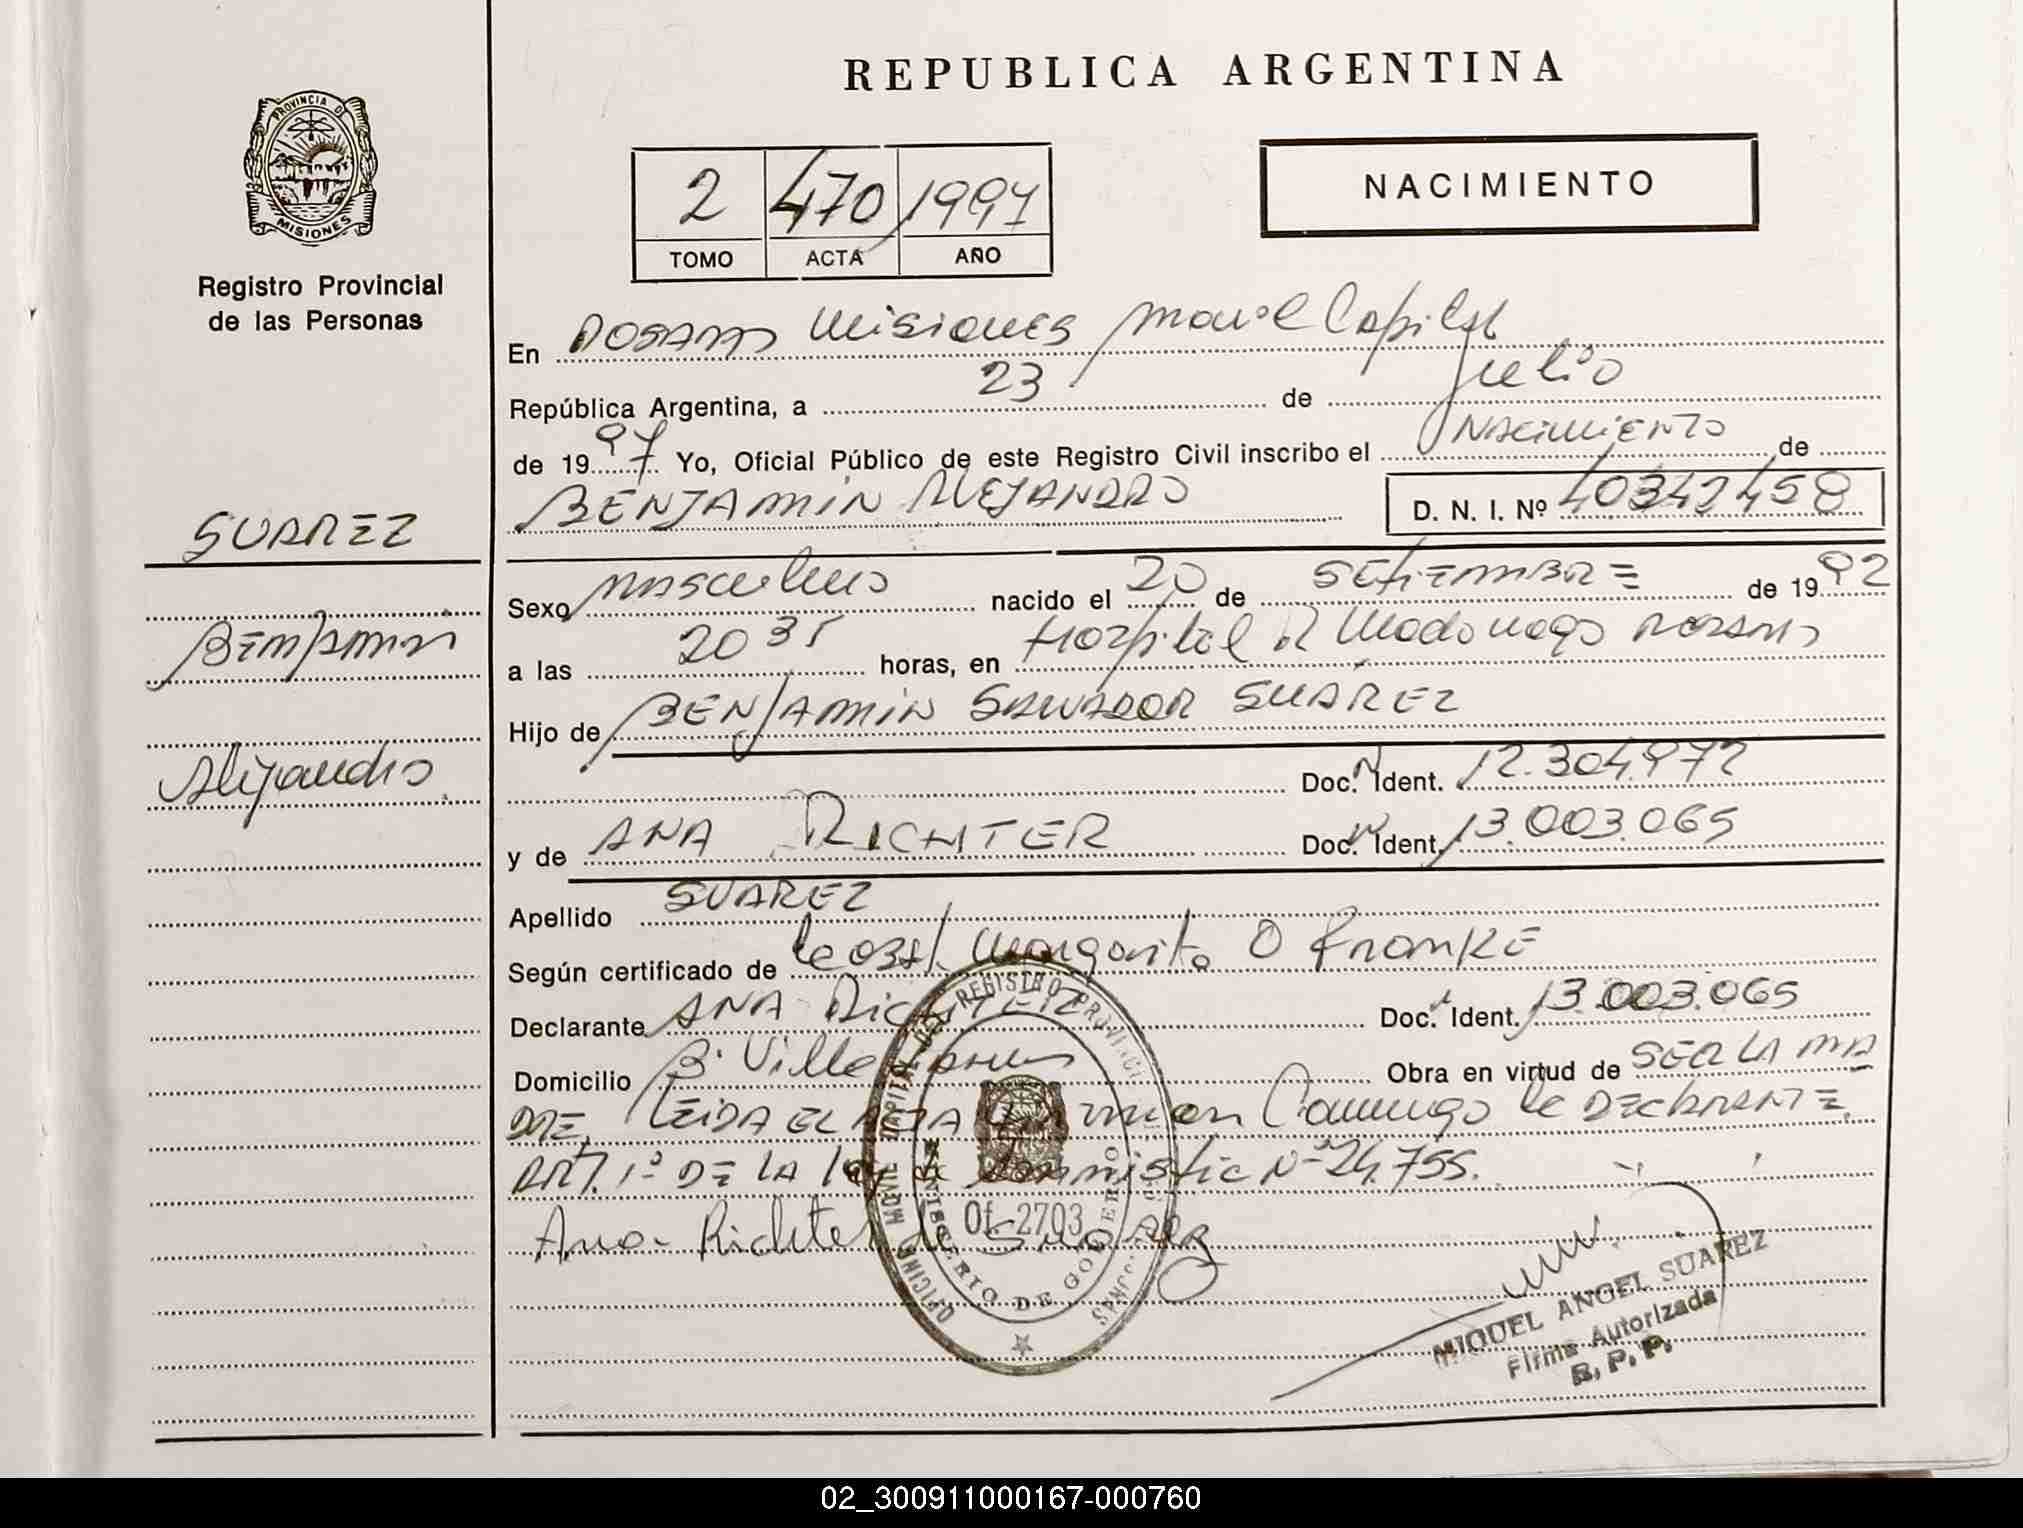 REPUBLICA ARGENTINA
PROVINCIA D
MISIONES
Registro Provincial
de las Personas
2 470 1997
TOMO ACTA AÑO
NACIMIENTO
En POSADAS MISIONES Movil Capital
República Argentina, a 23 de Julio
de 1997 Yo, Oficial Público de este Registro Civil inscribo el NACIMIENTO de
BENJAMIN ALEJANDRO D. N. I. Nº 40342458
SUAREZ
Benjamin
Alejandro
Sexo masculino nacido el 20 de SETIEMBRE de 1992
a las 20 35 horas, en Hospital R Madariaga POSADAS
Hijo de BENJAMIN SALVADOR SUAREZ
Doc. N Ident. 12.304.972
y de ANA RICHTER Doc. N Ident. 13.003.065
Apellido SUAREZ
Según certificado de la obst. Margarita O FRANKE
Declarante ANA RICHTER Doc. Ident. 13.003.065
Domicilio Bº Villa Obra en virtud de SER LA MA
DRE, LEIDA EL ACTA conmigo la DECLARANTE.
ART. 1º DE LA Ley de Amnistia Nº 24.755.
Ana Richter de Suarez
OFICINA MOVIL CAPITAL DEL REGISTRO PROVINCIAL
MINISTERIO DE GOBIERNO
Of. 2703
MIGUEL ANGEL SUAREZ
Firma Autorizada
R. P. P.
02_300911000167-000760